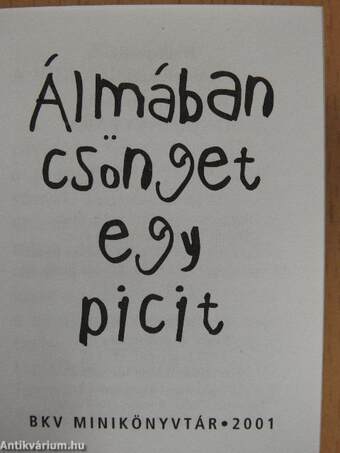 Álmában
csönget
egy
picit
BKV MINIKÖNYVTÁR•2001
Antikvárium.hu